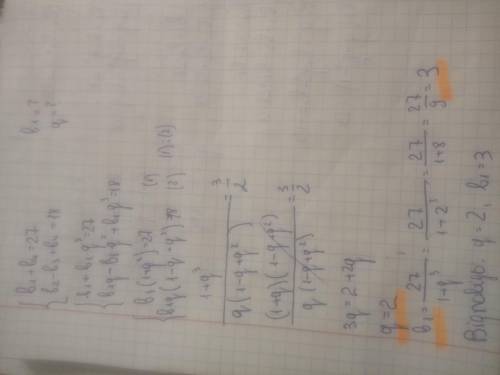 b₁+b₄=27
b₂-b₃+b₄=18
b₁=?
q=?
b₁+b₁q³=27
b₁q-b₁q²+b₁q³=18
b₁(1+q³)=27 (1)
b₁q(1-q+q²)=18 (2) (1):(2)
1+q³ / q(1-q+q²) = 3/2
(1+q)(1-q+q²) / q(1-q+q²) = 3/2
3q=2+2q
q=2
b₁= 27/1+q³ = 27/1+2³ = 27/1+8 = 27/9 = 3
Відповідь: q=2, b₁=3